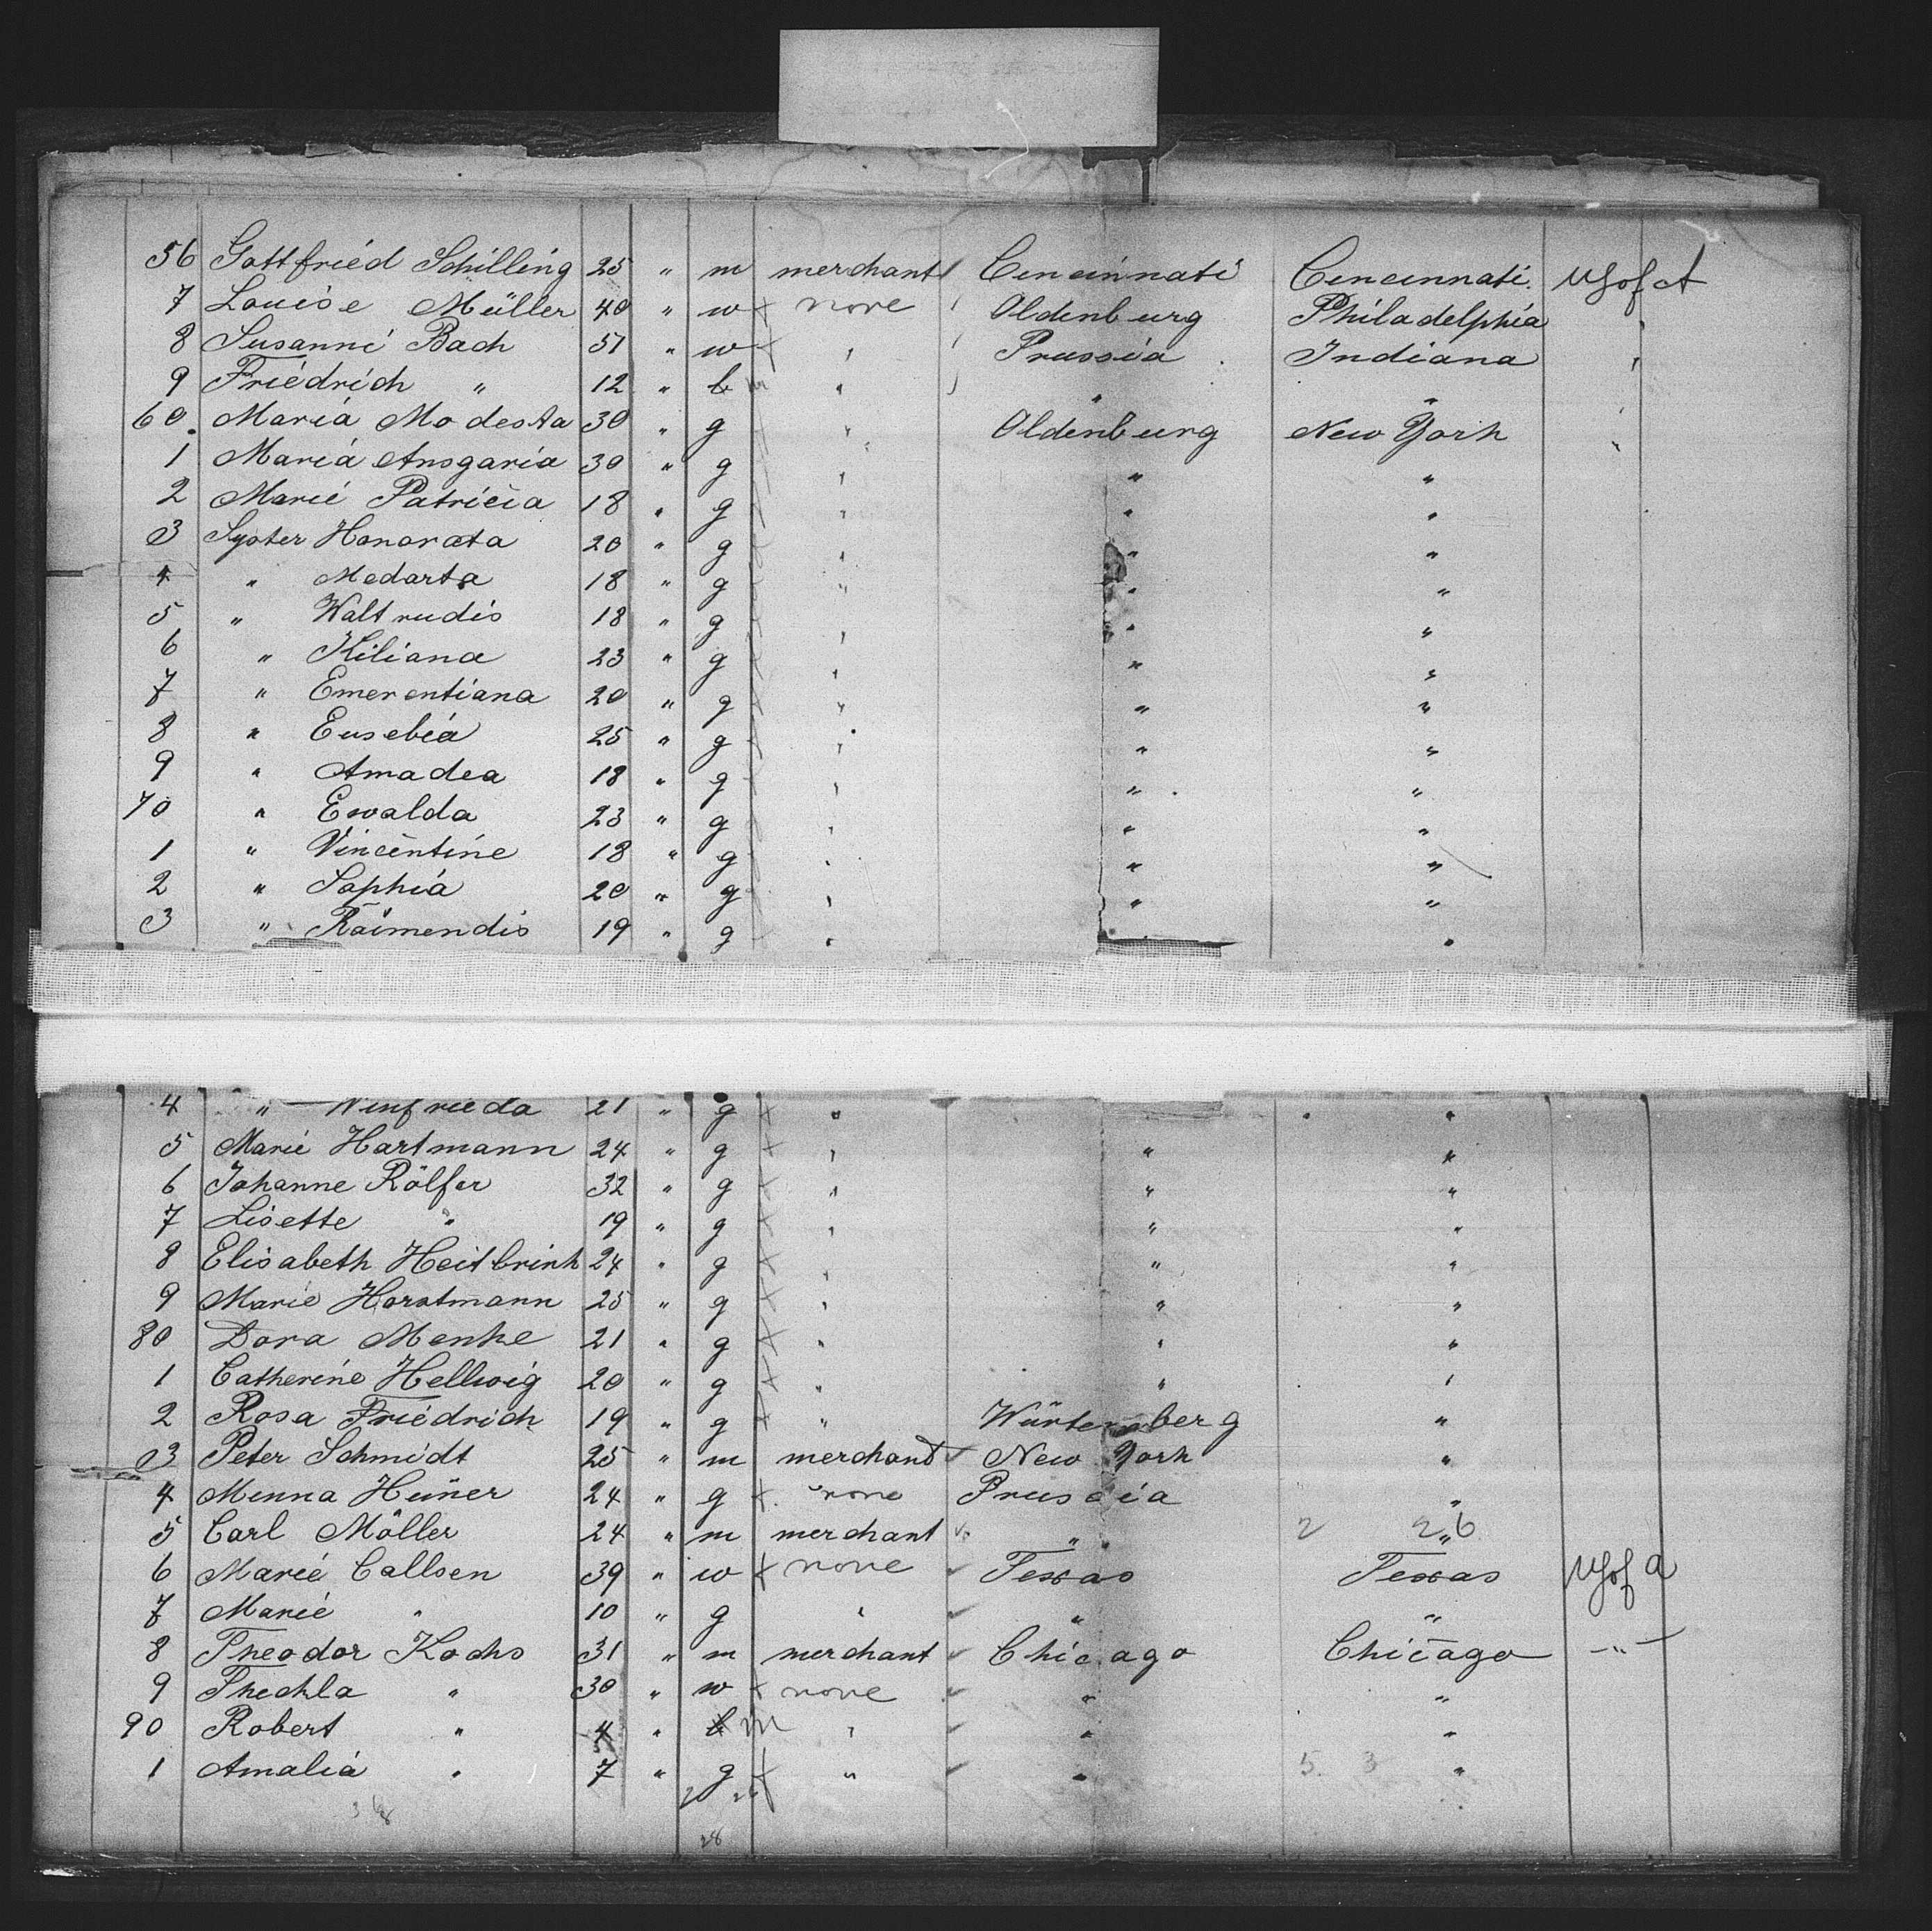 56 Gottfried Schilling 25 " m merchant Cincinnati Cincinnati. USofA
7 Louise Müller 40 " w none Oldenburg Philadelphia "
8 Susanni Bach 51 " w " Prussia Indiana "
9 Friedrich " 12 " b m " " "
60. Maria Modesta 30 " g " Oldenburg New York "
1 Maria Ansgaria 30 " g " " "
2 Marie Patricia 18 " g " " "
3 Syster Honorata 20 " g " " "
4 " Medarta 18 " g " " "
5 " Waltrudis 18 " g " " "
6 " Kiliana 23 " g " " "
7 " Emerentiana 20 " g " " "
8 " Eusebia 25 " g " " "
9 " Amadea 18 " g " " "
70 " Ewalda 23 " g " " "
1 " Vincentine 18 " g " " "
2 " Sophia 20 " g " " "
3 " Raimendis 19 " g " "
4 " Winfrieda 21 " g x " " "
5 Marie Hartmann 24 " g x " " "
6 Johanne Rölfer 32 " g x " " "
7 Lisette " 19 " g x " " "
8 Elisabeth Heitbrink 24 " g x " " "
9 Marie Horstmann 25 " g x " " "
80 Dora Menke 21 " g x " " "
1 Catherine Hellwig 20 " g x " " "
2 Rosa Friedrich 19 " g x " Würtemberg "
3 Peter Schmidt 25 " m merchant New York "
4 Minna Hüner 24 " g x none Prussia "
5 Carl Möller 24 " m merchant " 2 2 " 6
6 Marie Callsen 39 " w x none Texas Texas USofA
7 Marie " 10 " g " " "
8 Theodor Kochs 31 " m merchant Chicago Chicago "
9 Thechla " 30 " w x none " "
90 Robert " 4 " b m " " "
1 Amalia " 7 " g x " " 5. 3 "
28